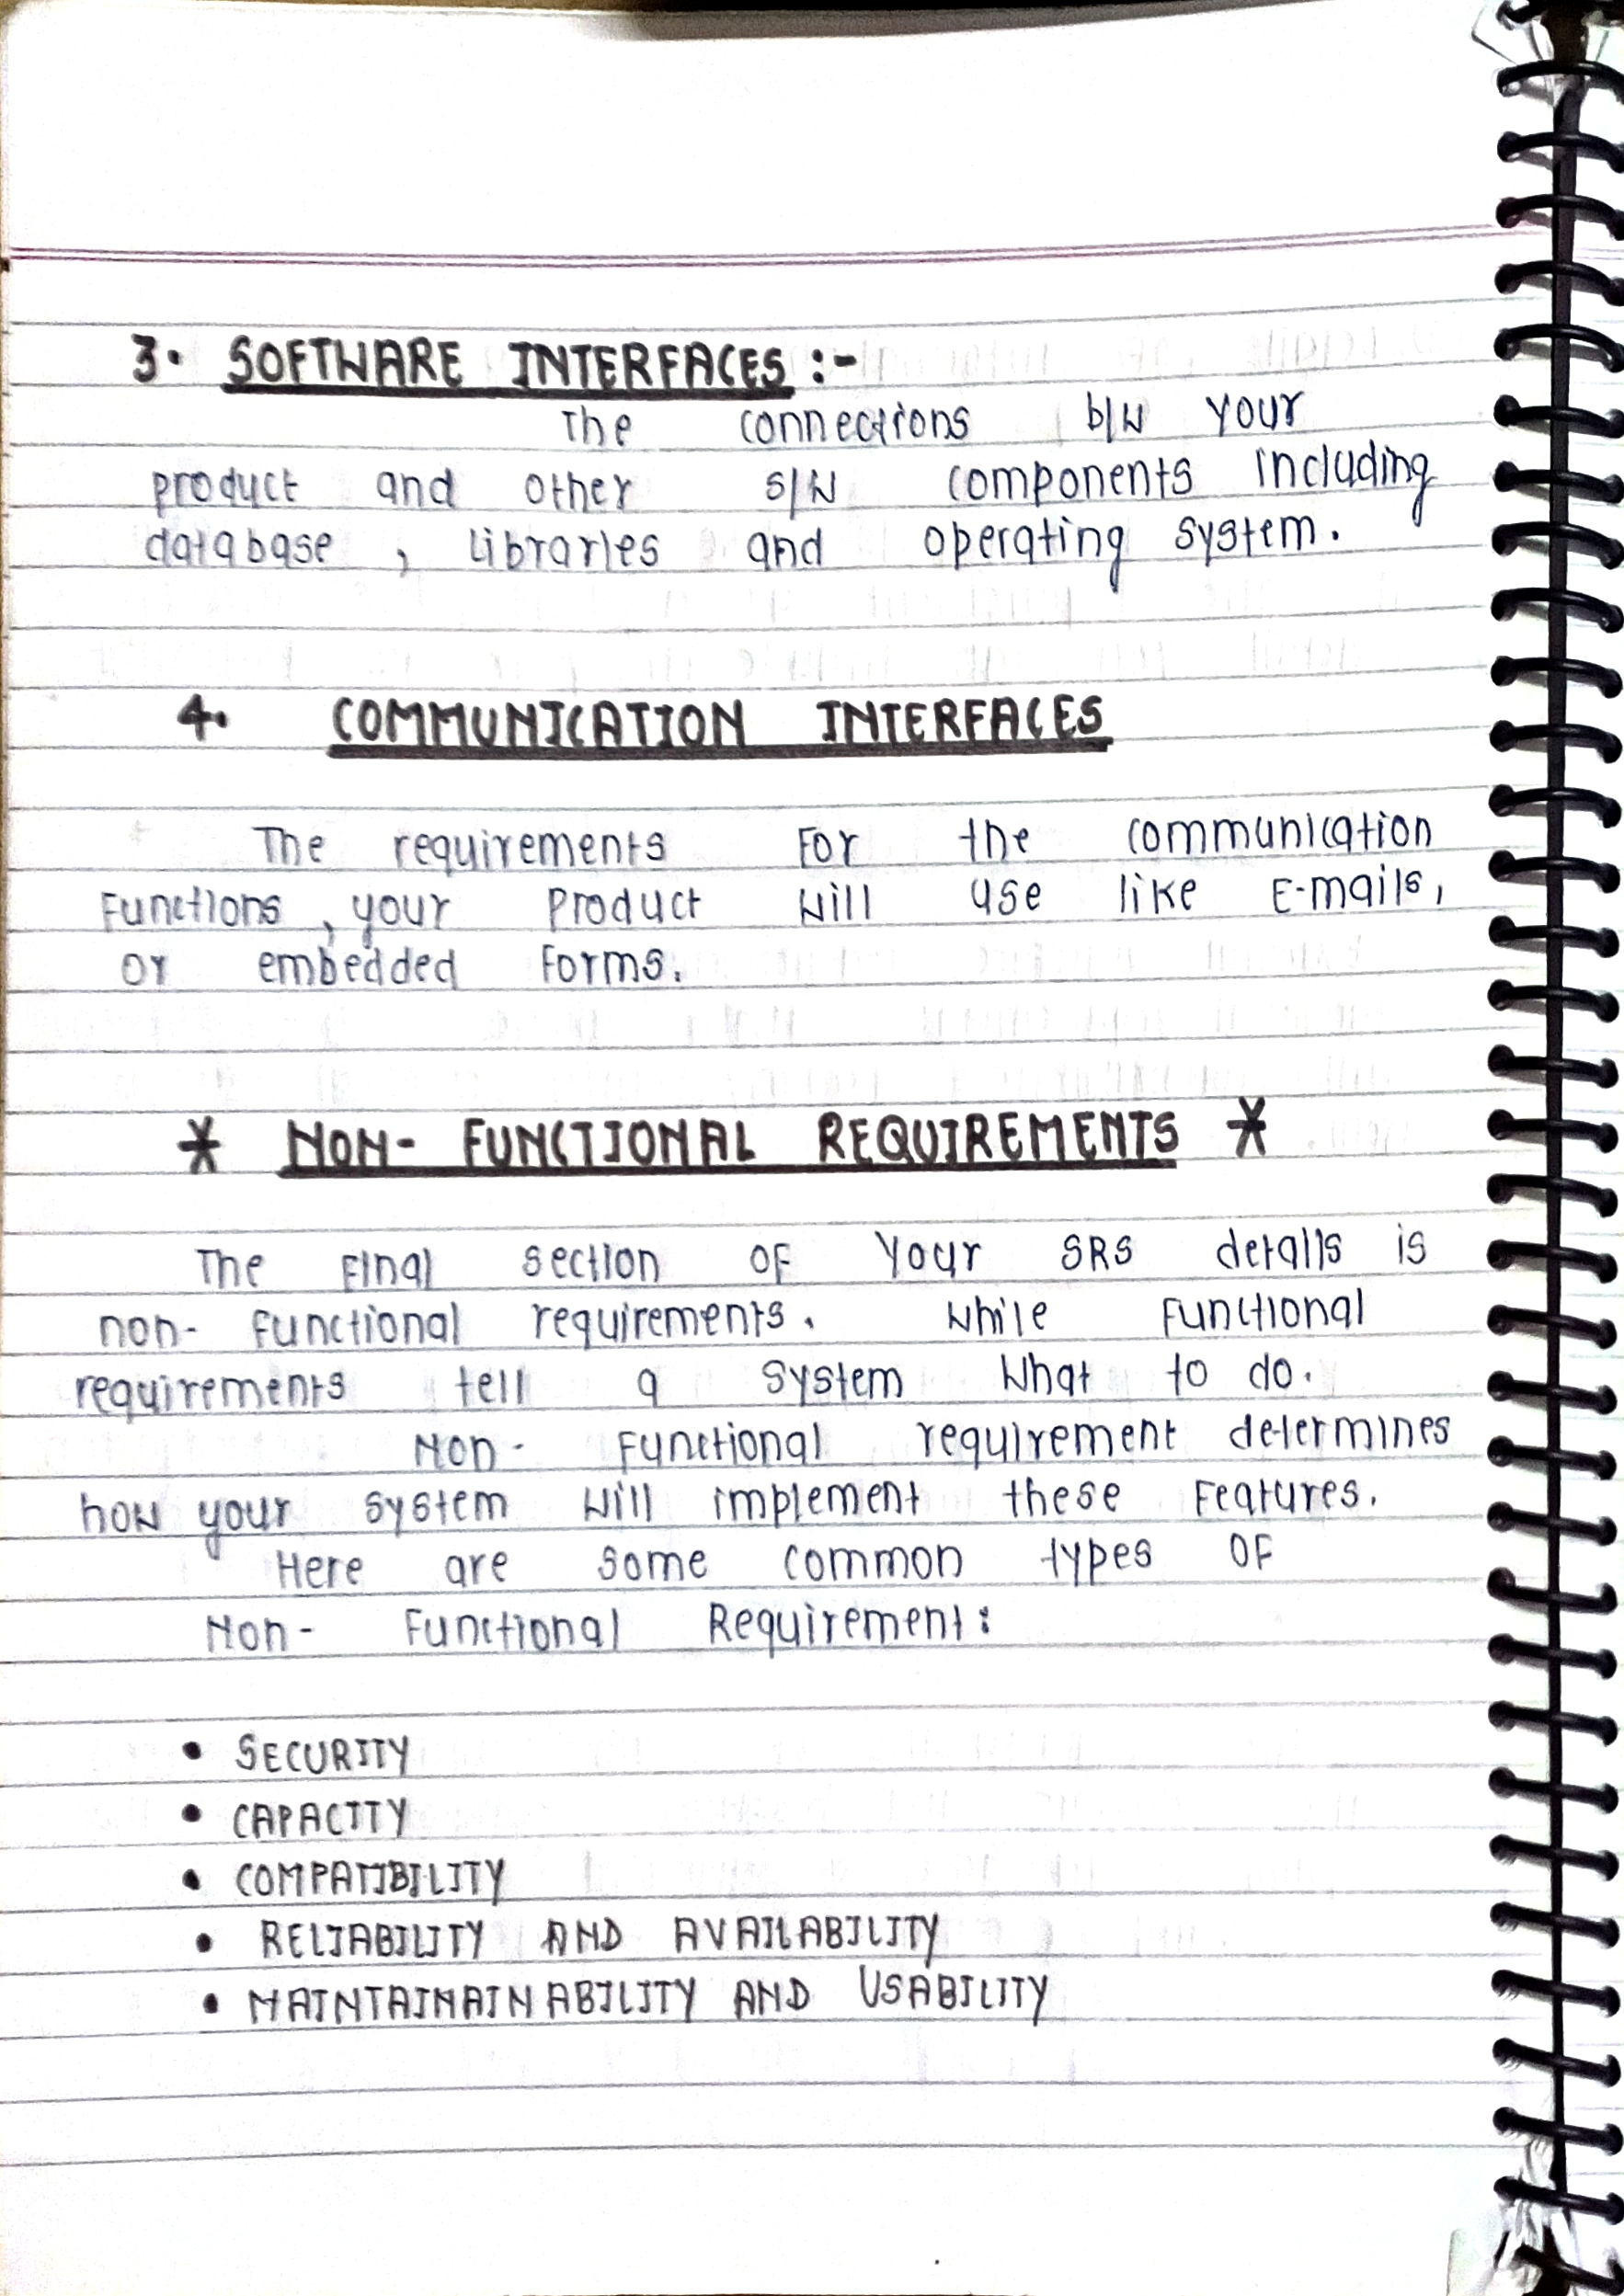 3. SOFTWARE INTERFACES :-
The connections b/w your
product and other s/w components including
database , libraries and operating system.
4. COMMUNICATION INTERFACES
The requirements For the communication
Functions , your Product will use like E-mails,
or embedded Forms.
* NON- FUNCTIONAL REQUIREMENTS *
The Final section OF Your SRS details is
non- Functional requirements. While Functional
requirements tell a system what to do.
Non- Functional requirement determines
how your system will implement these Features.
Here are some common types OF
Non- Functional Requirement:
• SECURITY
• CAPACITY
• COMPATIBILITY
• RELIABILITY AND AVAILABILITY
• MAINTAINAINABILITY AND USABILITY